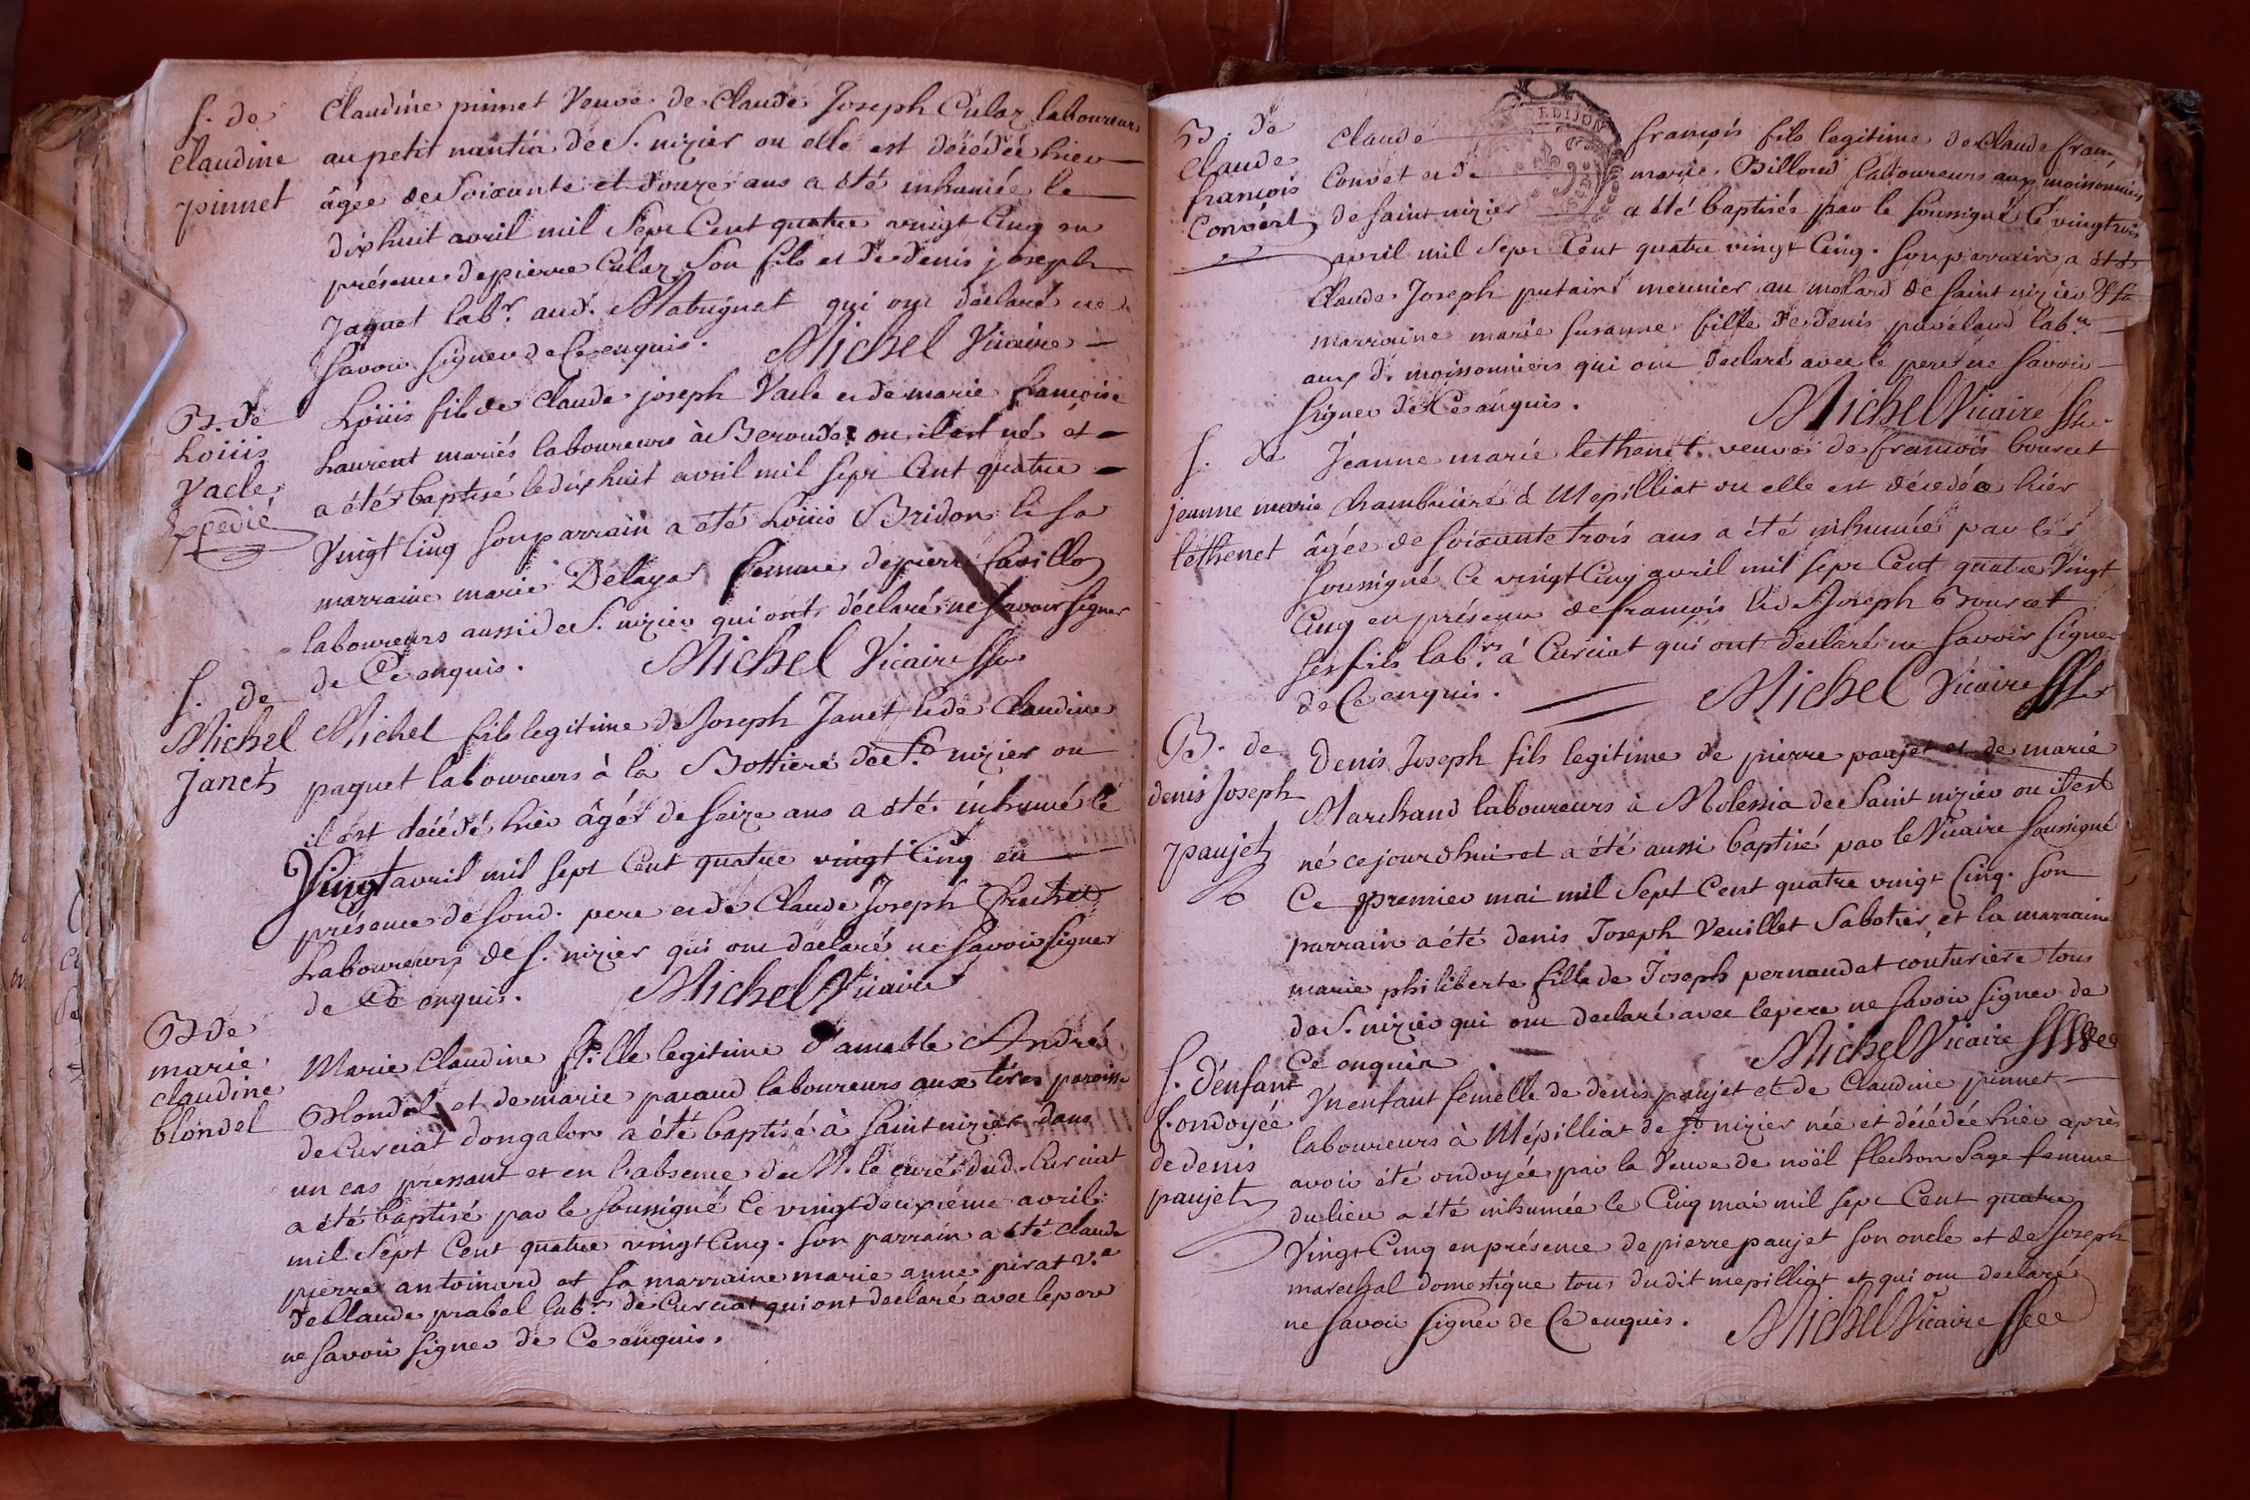 S. de
Claudine
pinnet
Claudine pinnet Veuve de Claude Joseph Culaz laboureurs
au petit nantin de S. nizier ou elle est décédée hier
âgée de Soixante et douze ans a été inhumée le
dix huit avril mil Sept Cent quatre vingt Cinq en
présence de pierre Culaz Son fils et de denis joseph
Jaquet labr. aud. Matrignat qui ont déclaré ne
Savoir Signer de Ce enquis. Michel Vicaire
B. de
Loüis
Vacle
Loüis fils de Claude joseph Vacle et de marie françoise
Laurent mariés laboureurs à Beroude ou il est né et
a été baptisé le dix huit avril mil sept Cent quatre
Vingt Cinq Son parrain a été Loüis Bridon et Sa
marraine marie Delaya femme de pierre favillo
laboureurs aussi de S. nizier qui ont déclaré ne Savoir Signer
de Ce enquis. Michel Vicaire
S. de
Michel
Janet
Michel fils legitime de Joseph Janet et de Claudine
paquet laboureurs à la Bottiere de St. nizier ou
il est décédé hier âgé de Seize ans a été inhumé le
Vingt avril mil sept Cent quatre vingt Cinq en
présence de Sond. pere et de Claude Joseph
Laboureurs de S. nizier qui ont declaré ne Savoir Signer
de Ce enquis. Michel Vicaire
B de
marie
claudine
blondel
Marie Claudine fille legitime d'amable André
Blondel et de marie pacaud laboureurs aux téres paroisse
de Curciat dongalon a été baptisé à Saint nizier dans
un cas pressant et en l'absence de M. le curé dud. Curciat
a été baptisé par le Soussigné le vingt deuxième avril
mil Sept Cent quatre vingt Cinq. Son parrain a été claude
pierre antoinard et Sa marraine marie anne pirat ve.
de Claude prabel labr. de Curciat qui ont declaré avec le pere
ne Savoir Signer de Ce enquis.
B. de
Claude
françois
Convert
Claude françois fils legitime de Claude fran.
Convert et de marie Billoud laboureurs aux moissonniers
de Saint nizier a été baptisés par le Soussigné le vingt trois
avril mil Sept Cent quatre vingt Cinq. Son parrain a été
Claude Joseph putain meunier au molard de Saint nizier & Sa
marraine marie Susanne fille de denis pavéland labr.
aux d. moissonniers qui ont declaré avec le pere ne Savoir
Signer de Ce enquis. Michel Vicaire
S. de
jeanne marie
lethenet
Jéanne marie lethenet veuve de françois bourcet
Chambriere à Mépilliat ou elle est décédée hiér
âgée de Soixante trois ans a été inhumée par le
Soussigné le vingt Cinq avril mil Sept Cent quatre Vingt
Cinq en présence de françois et de Joseph Bourcet
Ses fils labrs. à Curciat qui ont declaré ne Savoir Signer
de Ce enquis. Michel Vicaire
B. de
denis Joseph
paujet
Denis Joseph fils legitime de pierre paujet et de marie
Marchand laboureurs à Molessia de Saint nizier ou il est
né ce jourdhui et a été aussi baptisé par le Vicaire Soussigné
Ce premier mai mil Sept Cent quatre vingt Cinq. Son
parrain a été denis Joseph Veuillet Sabotier, et la marraine
marie philiberte fille de Joseph pernaudat couturière tous
de S. nizier qui ont declaré avec le pere ne Savoir Signer de
Ce enquis. Michel Vicaire
S. d'enfant
f. ondoyée
de denis
paujet
Un enfant femelle de denis paujet et de Claudine pinnet
laboureurs à Mépilliat de St. nizier née et décédée hier après
avoir été ondoyée par la Veuve de noël flechon Sage femme
du lieu a été inhumée le Cinq mai mil Sept Cent quatre
Vingt Cinq en présence de pierre paujet son oncle et de Joseph
marechal domestique tous dudit mepilliat et qui ont declaré
ne Savoir Signer de Ce enquis. Michel Vicaire